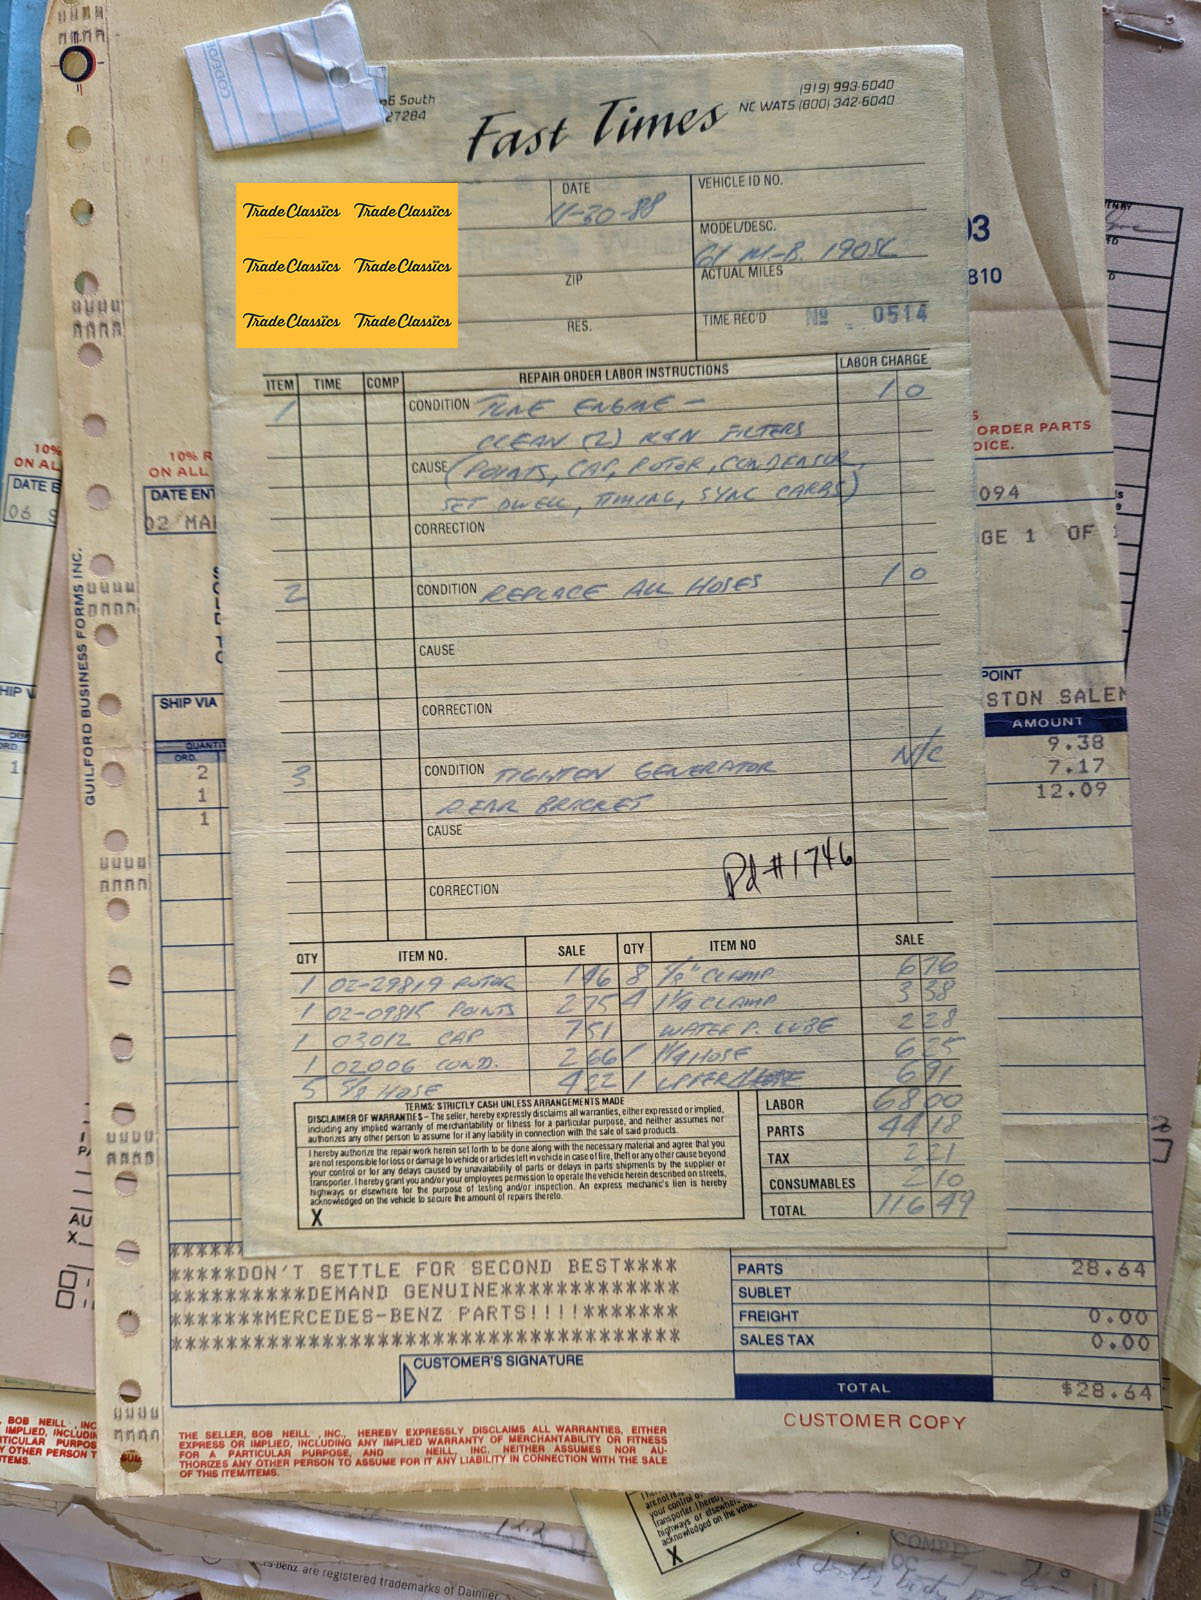 CODE/DE
South
27284
Fast Times
(919) 993-6040
NC WATS (800) 342-6040
TradeClassics TradeClassics
TradeClassics TradeClassics
TradeClassics TradeClassics
DATE
11-30-88
ZIP
RES.
VEHICLE ID NO.
MODEL/DESC.
61 M-B 190SL
ACTUAL MILES
TIME REC'D Nº 0514
ITEM TIME COMP REPAIR ORDER LABOR INSTRUCTIONS LABOR CHARGE
1 CONDITION TUNE ENGINE - 1 0
CLEAN (2) K&N FILTERS
CAUSE (POINTS, CAP, ROTOR, CONDENSOR,
SET DWELL, TIMING, SYNC CARBS)
CORRECTION
2 CONDITION REPLACE ALL HOSES 1 0
CAUSE
CORRECTION
3 CONDITION TIGHTON GENERATOR N/C
REAR BRACKET
CAUSE
CORRECTION
Pd #1746
QTY ITEM NO. SALE QTY ITEM NO SALE
1 02-29819 ROTOR 1 46 8 CLAMP 6 76
1 POINTS 2 75 4 1 1/4 CLAMP 3 38
1 03012 CAP 7 51 WATER P. LUBE 2 28
1 02006 COND. 2 66 1 1 1/4 HOSE 6 25
5 5/8 HOSE 4 22 1 UPPER 6 91
TERMS: STRICTLY CASH UNLESS ARRANGEMENTS MADE
DISCLAIMER OF WARRANTIES - The seller, hereby expressly disclaims all warranties, either expressed or implied,
including any implied warranty of merchantability or fitness for a particular purpose, and neither assumes nor
authorizes any other person to assume for it any liability in connection with the sale of said products.
I hereby authorize the repair work herein set forth to be done along with the necessary material and agree that you
are not responsible for loss or damage to vehicle or articles left in vehicle in case of fire, theft or any other cause beyond
your control or for any delays caused by unavailability of parts or delays in parts shipments by the supplier or
transporter. I hereby grant you and/or your employees permission to operate the vehicle herein described on streets,
highways or elsewhere for the purpose of testing and/or inspection. An express mechanic's lien is hereby
acknowledged on the vehicle to secure the amount of repairs thereto.
X
LABOR 68 00
PARTS 44 18
TAX 2 21
CONSUMABLES 2 10
TOTAL 116 49
GUILFORD BUSINESS FORMS INC.
03
810
10% R
ON ALL
DATE ENT
02 MA
ORDER PARTS
OICE.
094
GE 1 OF
SHIP VIA
POINT
STON SALEM
QUANTI
ORD.
AMOUNT
2 9.38
1 7.17
1 12.09
*****DON'T SETTLE FOR SECOND BEST****
**********DEMAND GENUINE*************
*******MERCEDES-BENZ PARTS!!!!*******
*************************************
CUSTOMER'S SIGNATURE
PARTS 28.64
SUBLET
FREIGHT 0.00
SALES TAX 0.00
TOTAL $28.64
CUSTOMER COPY
THE SELLER, BOB NEILL, INC., HEREBY EXPRESSLY DISCLAIMS ALL WARRANTIES, EITHER
EXPRESS OR IMPLIED, INCLUDING ANY IMPLIED WARRANTY OF MERCHANTABILITY OR FITNESS
FOR A PARTICULAR PURPOSE, AND NEILL, INC. NEITHER ASSUMES NOR AU-
THORIZES ANY OTHER PERSON TO ASSUME FOR IT ANY LIABILITY IN CONNECTION WITH THE SALE
OF THIS ITEM/ITEMS.
10%
ON AL
DATE E
06
HIP V
1
BOB NEILL, INC
IMPLIED, INCLUDIN
TICULAR PURPOS
Y OTHER PERSON T
TEMS.
AU
X
your control o
transporter. I hereb
highways or elsewher
acknowledged on the vehic
X
12.2
es-Benz are registered trademarks of Daimler